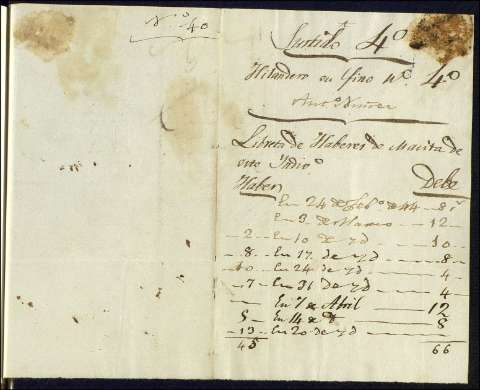 N.º 40
Surtido 4º
Hilandero en fino Nº. 4º
Antº
Libreta de Haberes de
este Indio
Haber Debe
En 24 de Febº de 44 8
En 3 de Marzo 12
2 En 10 de yd 10
8 En 17 de yd 8
10 En 24 de yd 4
7 En 31 de yd 4
En 7 de Abril 12
5 En 14 de 8
13 En 20 de yd
45 66